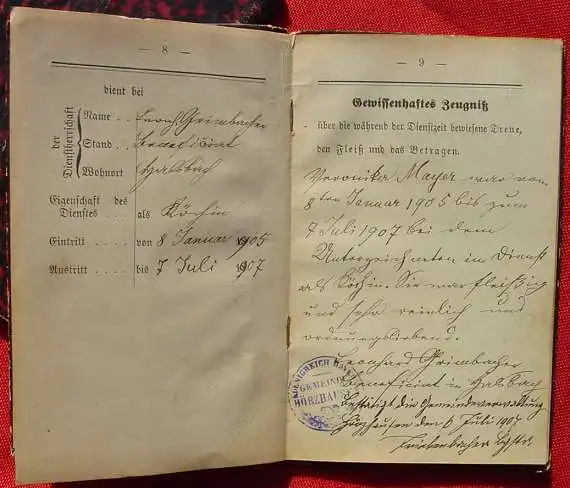 — 8 —
dient bei
der Dienstherrschaft
Name . . Leonh. Grimbacher
Stand . . Benefiziat
Wohnort
Eigenschaft des
Dienstes . . . als Köchin
Eintritt . . . . von 8 Januar 1905
Austritt . . . . bis 7 Juli 1907
— 9 —
Gewissenhaftes Zeugniß
über die während der Dienstzeit bewiesene Treue,
den Fleiß und das Betragen.
Veronika Mayer war vom
8ten Januar 1905 bis zum
7 Juli 1907 bei dem
Unterzeichneten im Dienst
als Köchin. Sie war fleißig
und sehr reinlich und
ordnungsliebend.
Leonhard Grimbacher
Benefiziat in
Bestätigt die Gemeindeverwaltung
den 6 Juli 1907
KÖNIGREICH BAYERN
GEMEINDE